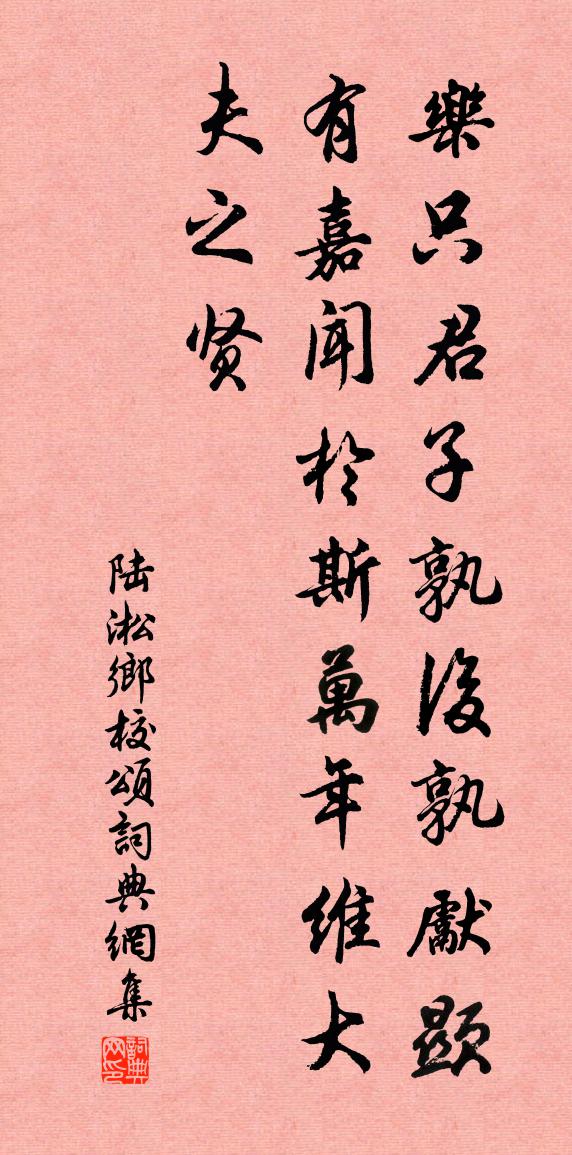 樂只君子孰後孰獻顯
有嘉聞於斯萬年維大
夫之贤
陆淞鄉校頌詞典網集
詞典网印